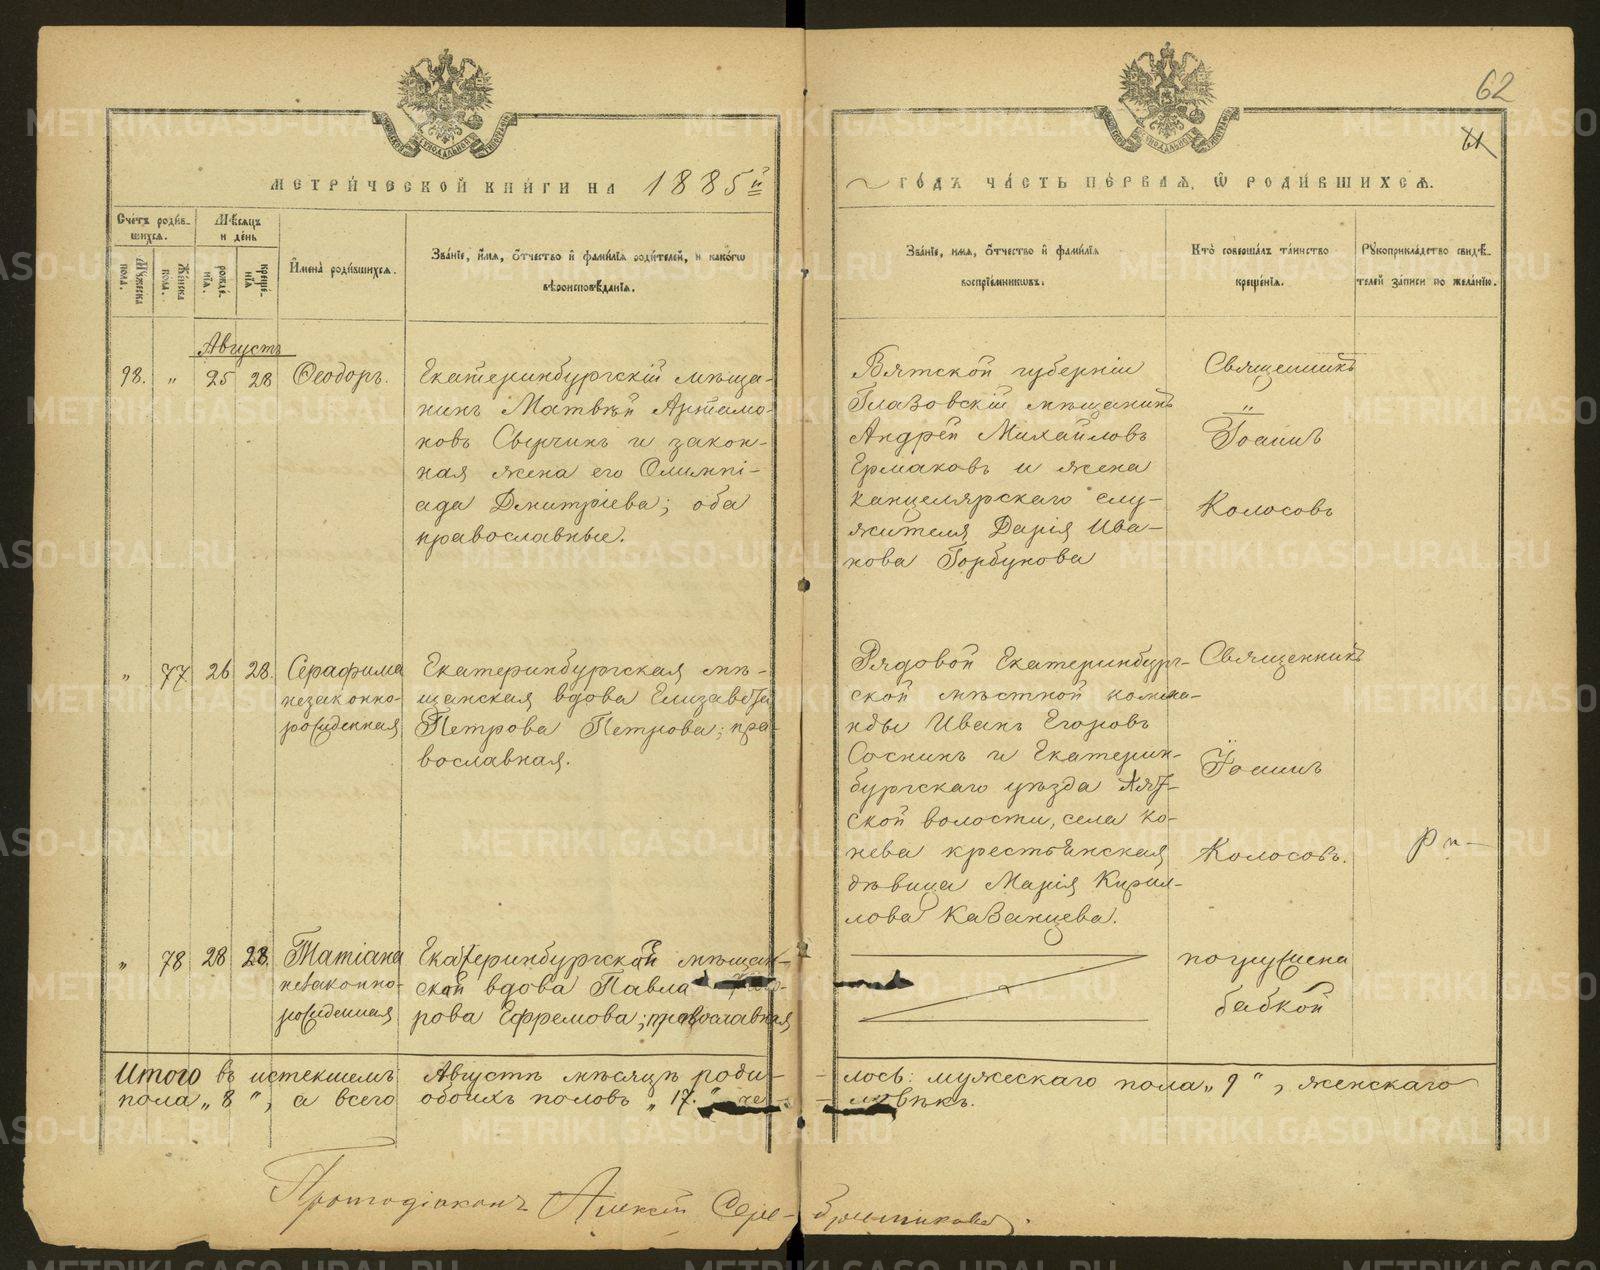 62
61
МЕТРИЧЕСКОЙ КНИГИ НА 1885й
ГОДЪ ЧАСТЬ ПЕРВАЯ, Ѿ РОДИВШИХСЯ.
Счетъ родив-
шихся.
Мѣсяцъ
и день
Мужеска
пола.
Женска
пола.
рожде-
нія.
креще-
нія
Имена родившихся.
Званіе, имя, отчество и фамилія родителей, и какогѡ
вѣроисповѣданія.
Званіе, имя, отчество и фамилія
воспріемникѡвъ.
Кто совершалъ таинство
крещенія.
Рукоприкладство свидѣ-
телей записи по желанію.
Августъ
98. „ 25 28 Ѳеодоръ.
Екатеринбургскій мѣща-
нинъ Матвѣй Артамо-
новъ Сверчинъ и закон-
ная жена его Олимпі-
ада Дмитріева; оба
православные.
Вятской губерніи
Глазовскій мѣщанинъ
Андрей Михайловъ
Ермаковъ и жена
канцелярскаго слу-
жителя Дарія Ива-
нова Горбунова
Священникъ
Іоаннъ
Колосовъ
„ 77 26 28. Серафима
незаконно-
рожденная
Екатеринбургская мѣ-
щанская вдова Елизавета
Петрова Петрова; пра-
вославная.
Рядовой Екатеринбург-
ской мѣстной коман-
нды Иванъ Егоровъ
Соснинъ и Екатерин-
бургскаго уѣзда Аят-
ской волости, села Ко-
нева крестьянская
дѣвица Марія Кирил-
лова Казанцева.
Священникъ
Іоаннъ
Колосовъ.
„ 78 28 28. Татіана
незаконно-
рожденная
Екатеринбургской мѣщан-
ской вдова Павла
рова Ефремова; православная
погружена
бабкой
Итого въ истекшемъ Августѣ мѣсяцѣ роди-
лось: мужескаго пола „9“, женскаго
пола „8“, а всего обоихъ половъ „17.“ че-
ловѣкъ.
Протодіаконъ Алексій Сере-
бренниковъ.